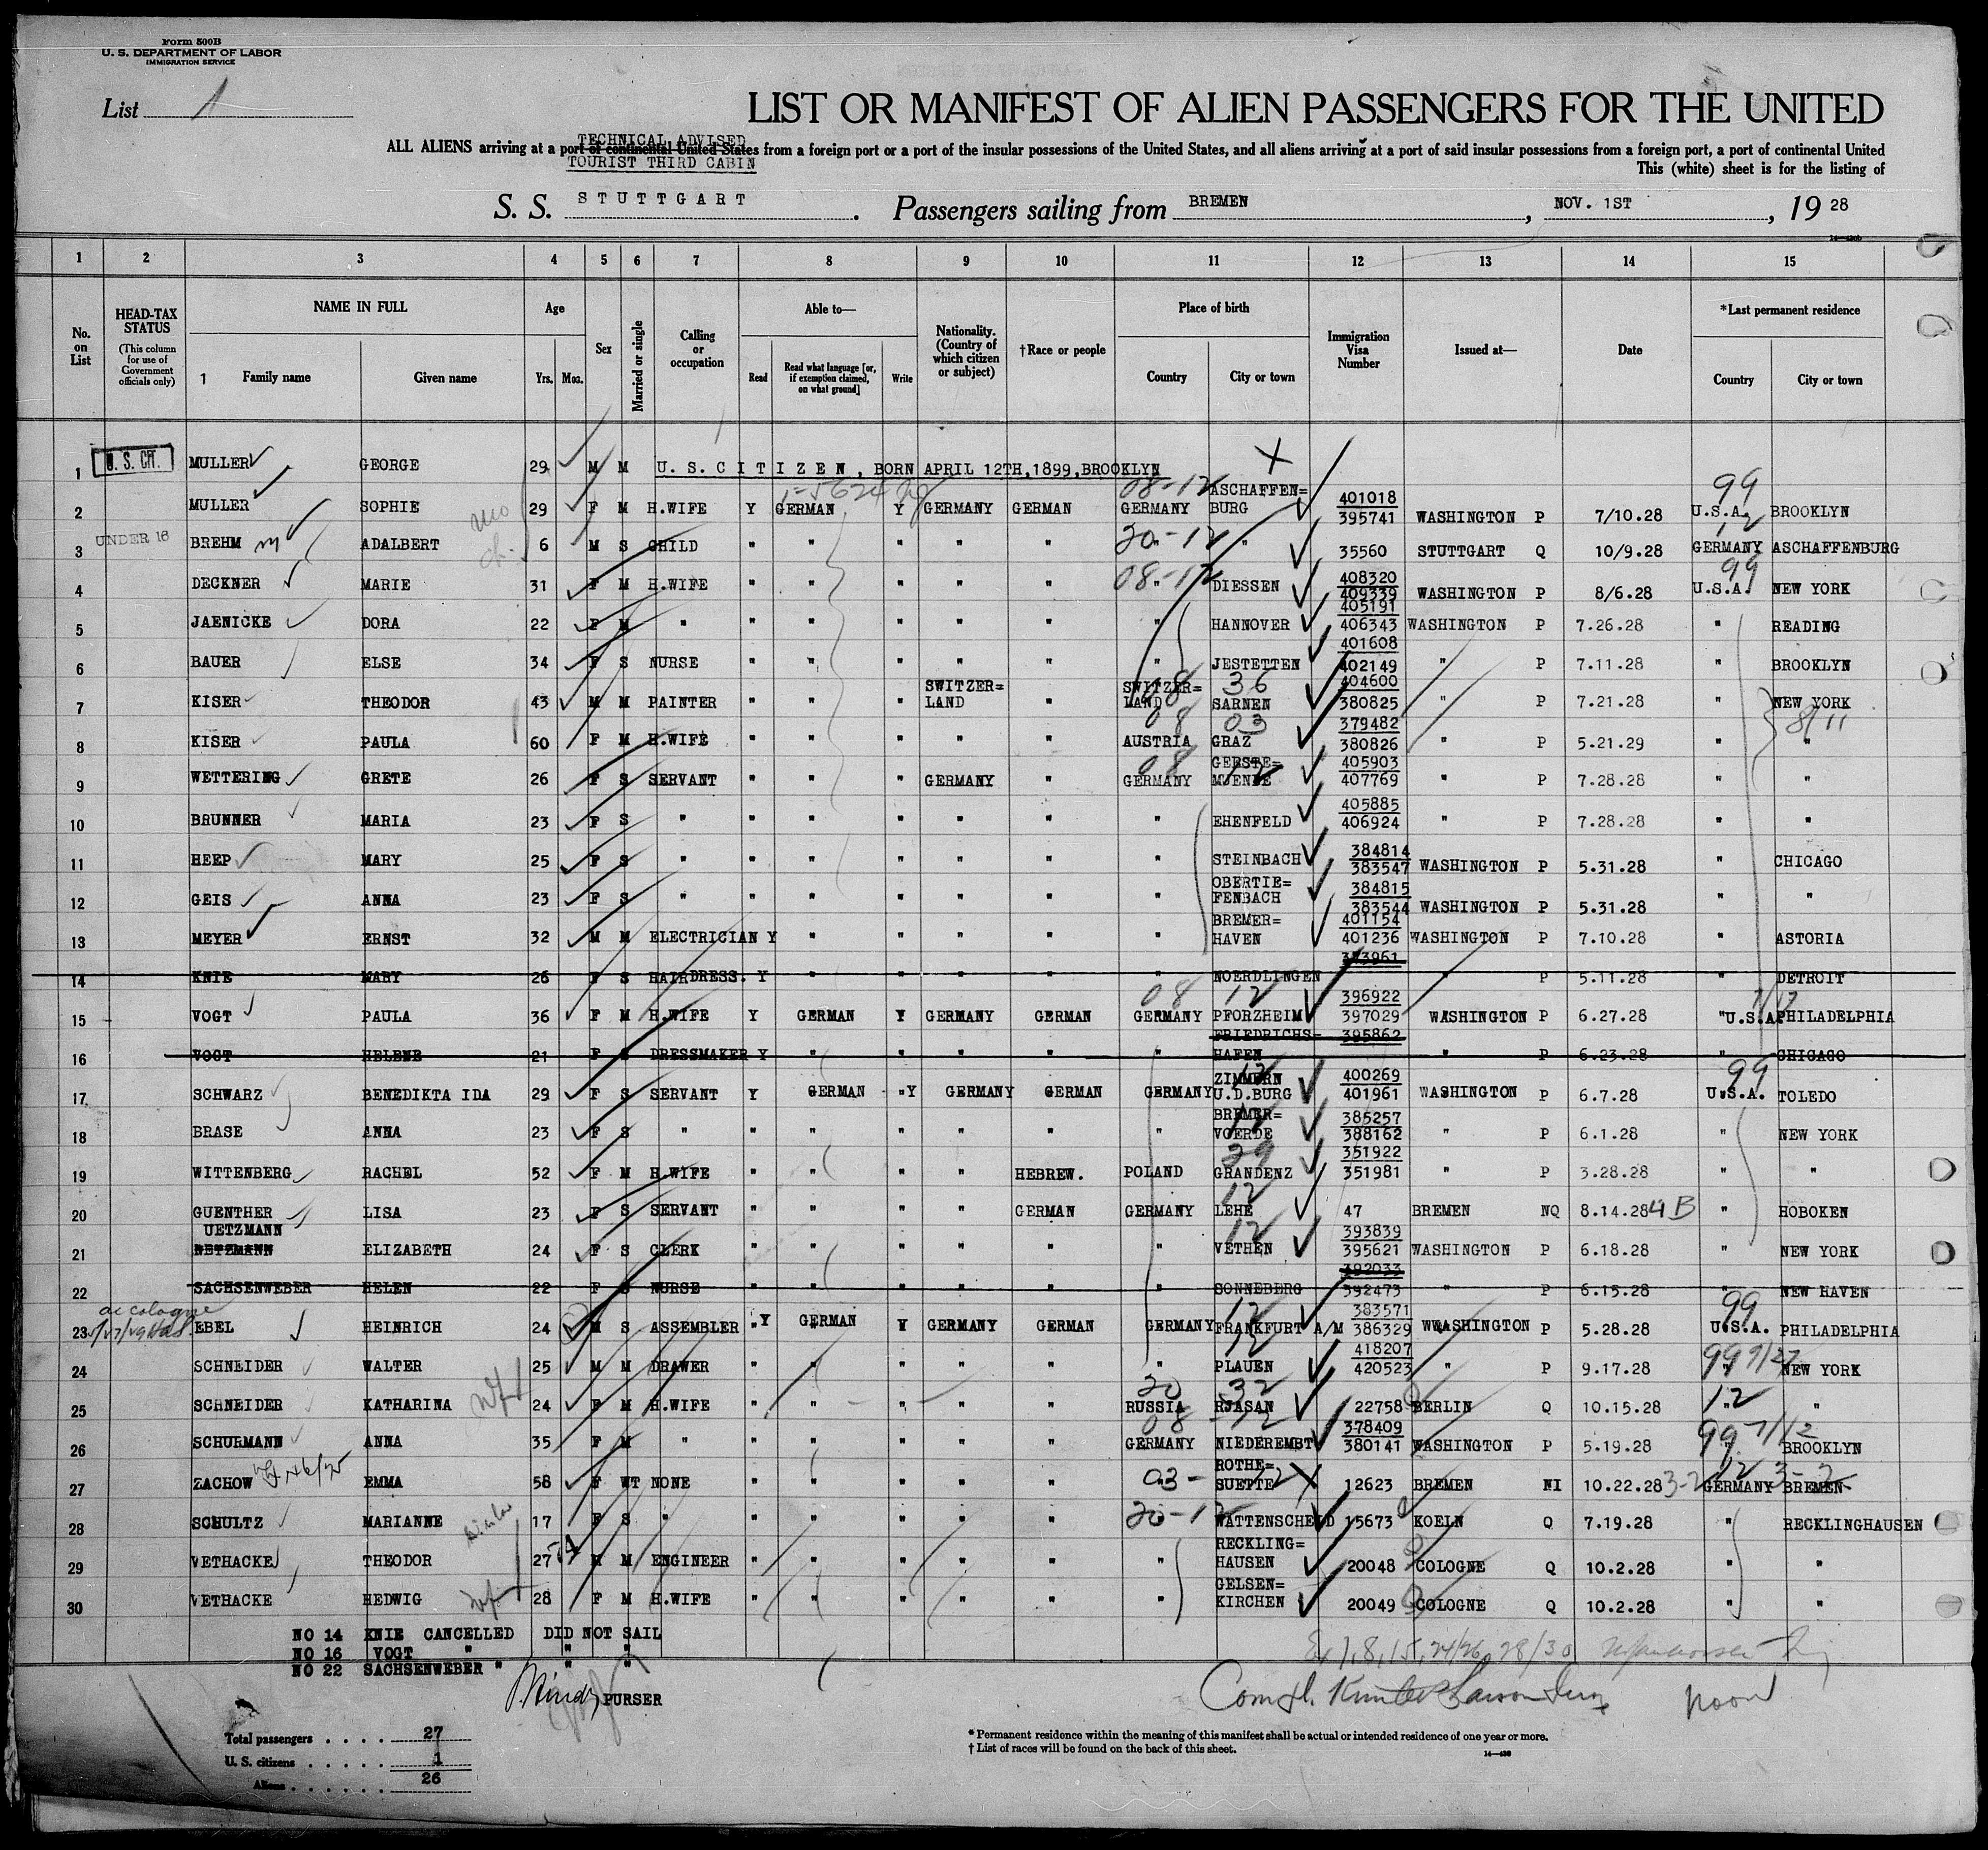 Form 500B
U. S. DEPARTMENT OF LABOR
IMMIGRATION SERVICE
List 1
LIST OR MANIFEST OF ALIEN PASSENGERS FOR THE UNITED
TECHNICAL ADVISED
ALL ALIENS arriving at a port of continental United States from a foreign port or a port of the insular possessions of the United States, and all aliens arriving at a port of said insular possessions from a foreign port, a port of continental United
TOURIST THIRD CABIN
This (white) sheet is for the listing of
S. S. STUTTGART. Passengers sailing from BREMEN, NOV. 1ST, 1928
14—430b
1 2 3 4 5 6 7 8 9 10 11 12 13 14 15
No. on List
HEAD-TAX STATUS (This column for use of Government officials only)
NAME IN FULL
1 Family name Given name
Age Yrs. Mos.
Sex
Married or single
Calling or occupation
Able to— Read Read what language [or, if exemption claimed, on what ground] Write
Nationality. (Country of which citizen or subject)
†Race or people
Place of birth Country City or town
Immigration Visa Number
Issued at—
Date
*Last permanent residence Country City or town
1 U. S. CIT. MULLER GEORGE 29 M M U. S. C I T I Z E N , BORN APRIL 12TH,1899,BROOKLYN
2 MULLER SOPHIE 29 F M H.WIFE Y GERMAN Y GERMANY GERMAN 08-12 GERMANY ASCHAFFEN= BURG 401018 395741 WASHINGTON P 7/10.28 99 U.S.A. BROOKLYN
3 UNDER 16 BREHM ADALBERT 6 M S CHILD " " " " " 20-12 " " 35560 STUTTGART Q 10/9.28 GERMANY ASCHAFFENBURG
4 DECKNER MARIE 31 F M H.WIFE " " " " " 08-12 " DIESSEN 408320 409339 WASHINGTON P 8/6.28 99 U.S.A. NEW YORK
5 JAENICKE DORA 22 F M " " " " " " " HANNOVER 405191 406343 WASHINGTON P 7.26.28 " READING
6 BAUER ELSE 34 F S NURSE " " " " " " JESTETTEN 401608 402149 " P 7.11.28 " BROOKLYN
7 KISER THEODOR 43 M M PAINTER " " " SWITZER= LAND " SWITZER= LAND 08 36 SARNEN 404600 380825 " P 7.21.28 " NEW YORK
8 KISER PAULA 60 F M H.WIFE " " " " " 08 03 AUSTRIA GRAZ 379482 380826 " P 5.21.29 " " 8/11
9 WETTERING GRETE 26 F S SERVANT " " " GERMANY " 08 12 GERMANY GEESTE= MUENDE 405903 407769 " P 7.28.28 " "
10 BRUNNER MARIA 23 F S " " " " " " " EHENFELD 405885 406924 " P 7.28.28 " "
11 HEEP MARY 25 F S " " " " " " " STEINBACH 384814 383547 WASHINGTON P 5.31.28 " CHICAGO
12 GEIS ANNA 23 F S " " " " " " " OBERTIE= FENBACH 384815 383544 WASHINGTON P 5.31.28 " "
13 MEYER ERNST 32 M M ELECTRICIAN Y " " " " " BREMER= HAVEN 401154 401236 WASHINGTON P 7.10.28 " ASTORIA
14 KNIE MARY 26 F S HAIRDRESS. Y " " " " " NOERDLINGEN 373961 " P 5.11.28 " DETROIT
15 VOGT PAULA 36 F M H.WIFE Y GERMAN Y GERMANY GERMAN 08 12 GERMANY PFORZHEIM 396922 397029 WASHINGTON P 6.27.28 "U.S.A. PHILADELPHIA
16 VOGT HELENE 21 F S DRESSMAKER Y " " " " " FRIEDRICHS= HAFEN 395862 " P 6.23.28 " CHICAGO
17 SCHWARZ BENEDIKTA IDA 29 F S SERVANT Y GERMAN "Y GERMANY GERMAN GERMANY ZIMMERN 12 U.D.BURG 400269 401961 WASHINGTON P 6.7.28 99 U.S.A. TOLEDO
18 BRASE ANNA 23 F S " " " " " " " BREMER= VOERDE 385257 388162 " P 6.1.28 " NEW YORK
19 WITTENBERG RACHEL 52 F M H.WIFE " " " " HEBREW. POLAND 29 GRANDENZ 351922 351981 " P 3.28.28 " "
20 GUENTHER LISA 23 F S SERVANT " " " " GERMAN GERMANY 12 LEHE 47 BREMEN NQ 8.14.28 4 B " HOBOKEN
21 UETZMANN NETZMANN ELIZABETH 24 F S CLERK " " " " " " 12 VETHEN 393839 395621 WASHINGTON P 6.18.28 " NEW YORK
22 SACHSENWEBER HELEN 22 F S NURSE " " " " " " SONNEBERG 392033 392473 " P 6.15.28 " NEW HAVEN
23 EBEL HEINRICH 24 M S ASSEMBLER "Y GERMAN Y GERMANY GERMAN GERMANY 12 FRANKFURT A/M 383571 386329 WASHINGTON P 5.28.28 99 U.S.A. PHILADELPHIA
24 SCHNEIDER WALTER 25 M M DRAWER " " " " " " 12 PLAUEN 418207 420523 " P 9.17.28 99 " NEW YORK
25 SCHNEIDER KATHARINA 24 F M H.WIFE " " " " " 20 32 RUSSIA RJASAN 22758 BERLIN Q 10.15.28 12 " "
26 SCHURMANN ANNA 35 F M " " " " " " 08 12 GERMANY NIEDEREMBT 378409 380141 WASHINGTON P 5.19.28 99 7/12 " BROOKLYN
27 ZACHOW EMMA 58 F WT NONE " " " " " 03-12 " ROTHE= SUETTE 12623 BREMEN NI 10.22.28 3-2 12 GERMANY BREMEN
28 SCHULTZ MARIANNE 17 F S " " " " " " 20-12 WATTENSCHEID 15673 KOELN Q 7.19.28 " RECKLINGHAUSEN
29 VETHACKE THEODOR 27 M M ENGINEER " " " " " " RECKLING= HAUSEN 20048 COLOGNE Q 10.2.28 " "
30 VETHACKE HEDWIG 28 F M H.WIFE " " " " " " GELSEN= KIRCHEN 20049 COLOGNE Q 10.2.28 " "
NO 14 KNIE CANCELLED DID NOT SAIL
NO 16 VOGT " " "
NO 22 SACHSENWEBER " " "
PURSER
noon
Total passengers . . . . 27
U. S. citizens . . . . . 1
Aliens . . . . . . 26
* Permanent residence within the meaning of this manifest shall be actual or intended residence of one year or more.
† List of races will be found on the back of this sheet.
14—430